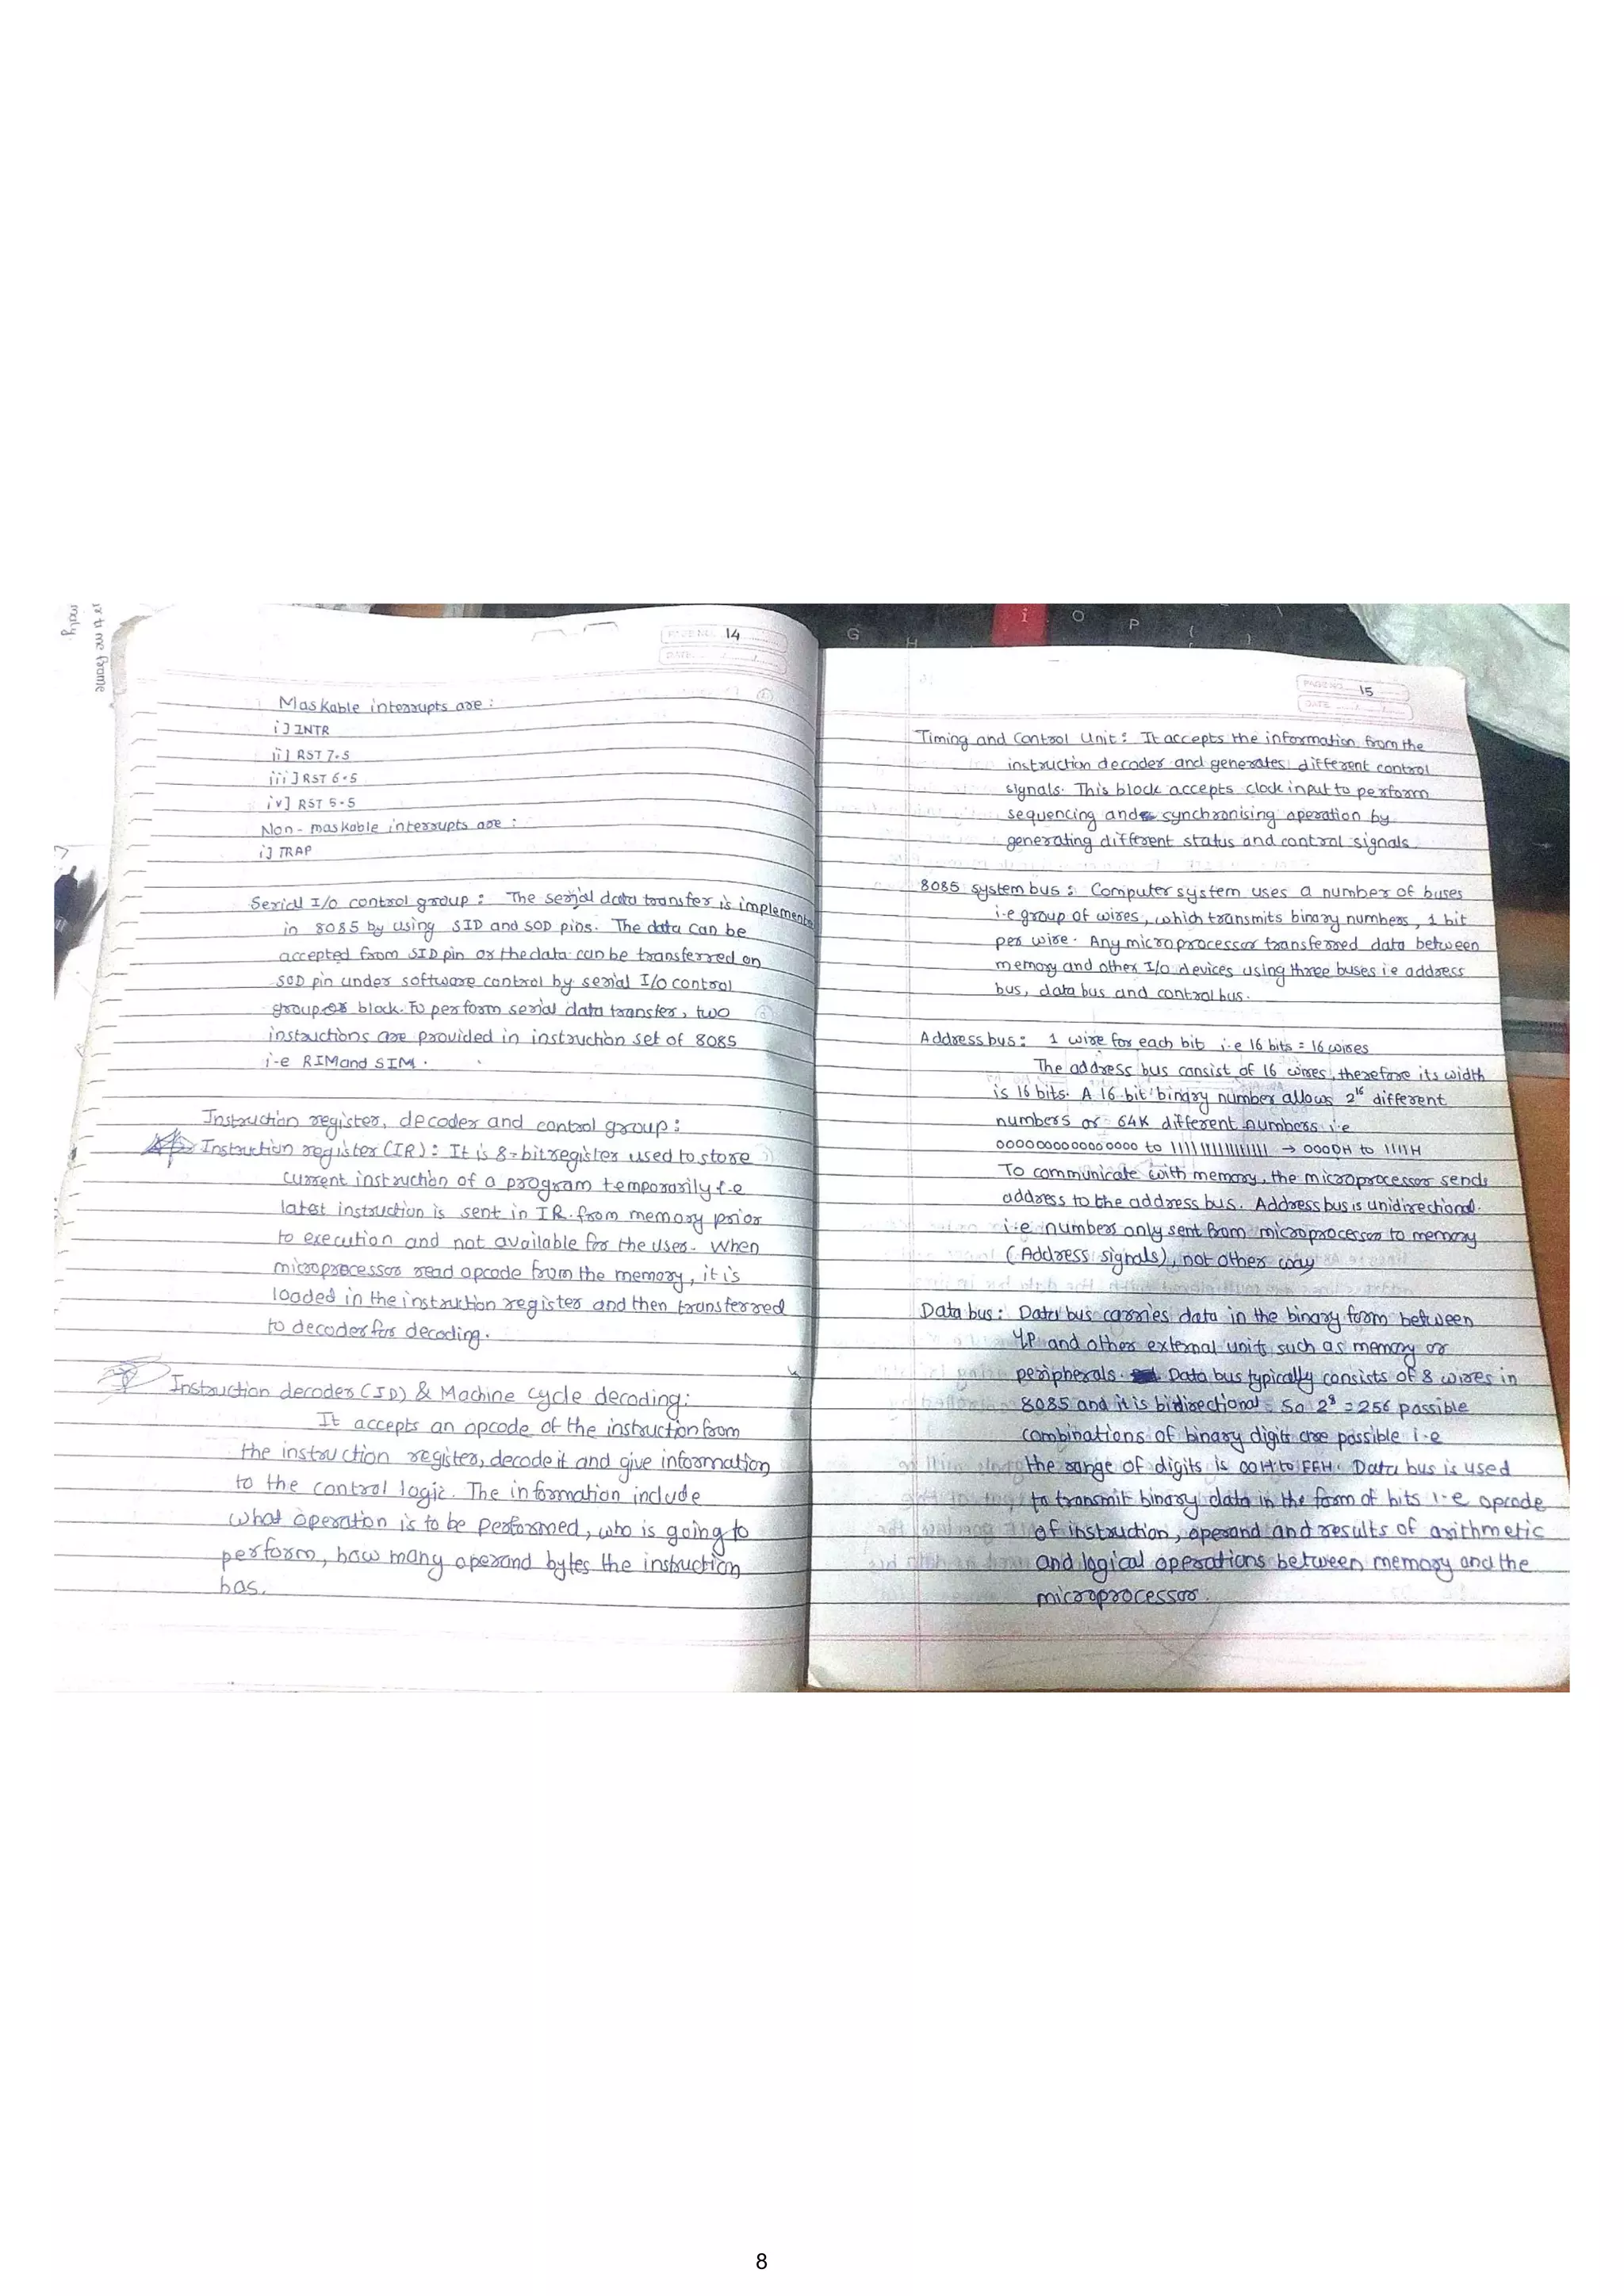 or to me frame
maly.
PAGE NO. 14
DATE
Maskable interrupts are :
i] INTR
ii] RST 7.5
iii] RST 6.5
iv] RST 5.5
Non-maskable interrupts are :
i] TRAP
Serial I/o control group : The serial data transfer is implemente
in 8085 by using SID and SOD pins. The data can be
accepted from SID pin or the data can be transferred on
SOD pin under software control by serial I/o control
group or block. To perform serial data transfer, two
instructions are provided in instruction set of 8085
i.e RIM and SIM.
Instruction register, decoder and control group :
Instruction register (IR) : It is 8-bit register used to store
current instruction of a program temporarily i.e
latest instruction is sent in IR from memory prior
to execution and not available for the user. When
microprocessor read opcode from the memory, it is
loaded in the instruction register and then transferred
to decoder for decoding.
Instruction decoder (ID) & Machine cycle decoding:
It accepts an opcode of the instruction from
the instruction register, decode it and give information
to the control logic. The information include
what operation is to be performed, who is going to
perform, how many operand bytes the instruction
has.
G H i O P { }
PAGE NO. 15
DATE
Timing and Control Unit : It accepts the information from the
instruction decoder and generates different control
signals. This block accepts clock input to perform
sequencing and synchronising operation by
generating different status and control signals.
8085 system bus : Computer system uses a number of buses
i.e group of wires, which transmits binary numbers, 1 bit
per wire. Any microprocessor transferred data between
memory and other I/o devices using three buses i.e address
bus, data bus and control bus.
Address bus : 1 wire for each bit i.e 16 bits = 16 wires
The address bus consist of 16 wires, therefore its width
is 16 bits. A 16-bit binary number allows 2¹⁶ different
numbers or 64K different numbers i.e
0000000000000000 to 1111111111111111 → 0000H to 1111H
To communicate with memory, the microprocessor sends
address to the address bus. Address bus is unidirectional.
i.e numbers only sent from microprocessor to memory
(Address signals), not other way
Data bus : Data bus carries data in the binary form between
μP and other external units such as memory or
peripherals. Data bus typically consists of 8 wires in
8085 and it is bidirectional. So 2⁸ = 256 possible
combinations of binary digits are possible i.e
the range of digits is 00H to FFH. Data bus is used
to transmit binary data in the form of bits i.e opcode
of instruction, operand and results of arithmetic
and logical operations between memory and the
microprocessor.
8